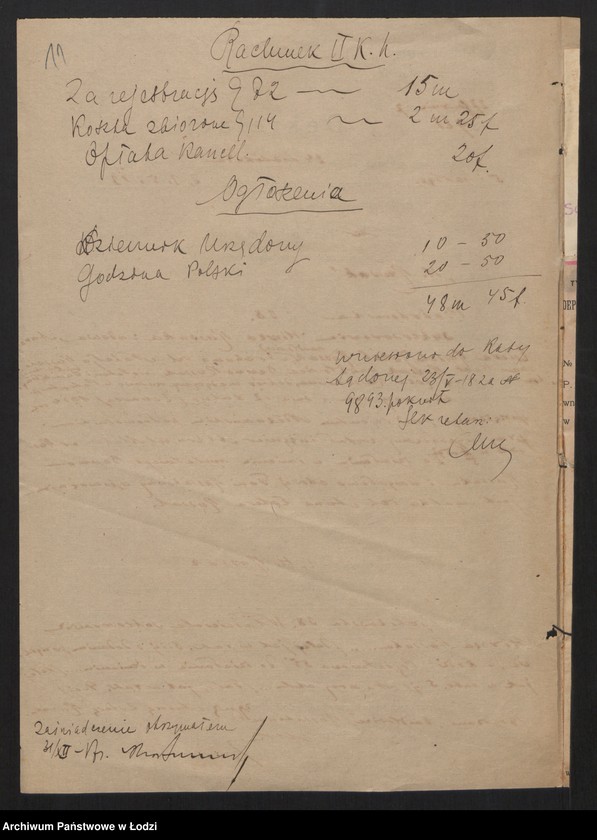 11
Rachunek II K. h.
Za rejestrację § 82 — 15 m
Koszta zbiorowe § 114 — 2 m 25 f
Opłata Kancel. 20 f.
Ogłoszenia
Dziennik Urzędowy 10 - 50
Godzina Polski 20 - 50
48 m 45 f.
wniesiono do Kasy
Sądowej 23/V
9893
Sekretarz:
Zaświadczenie otrzymałem
31/XII
DEP
№
P.
w
Archiwum Państwowe w Łodzi